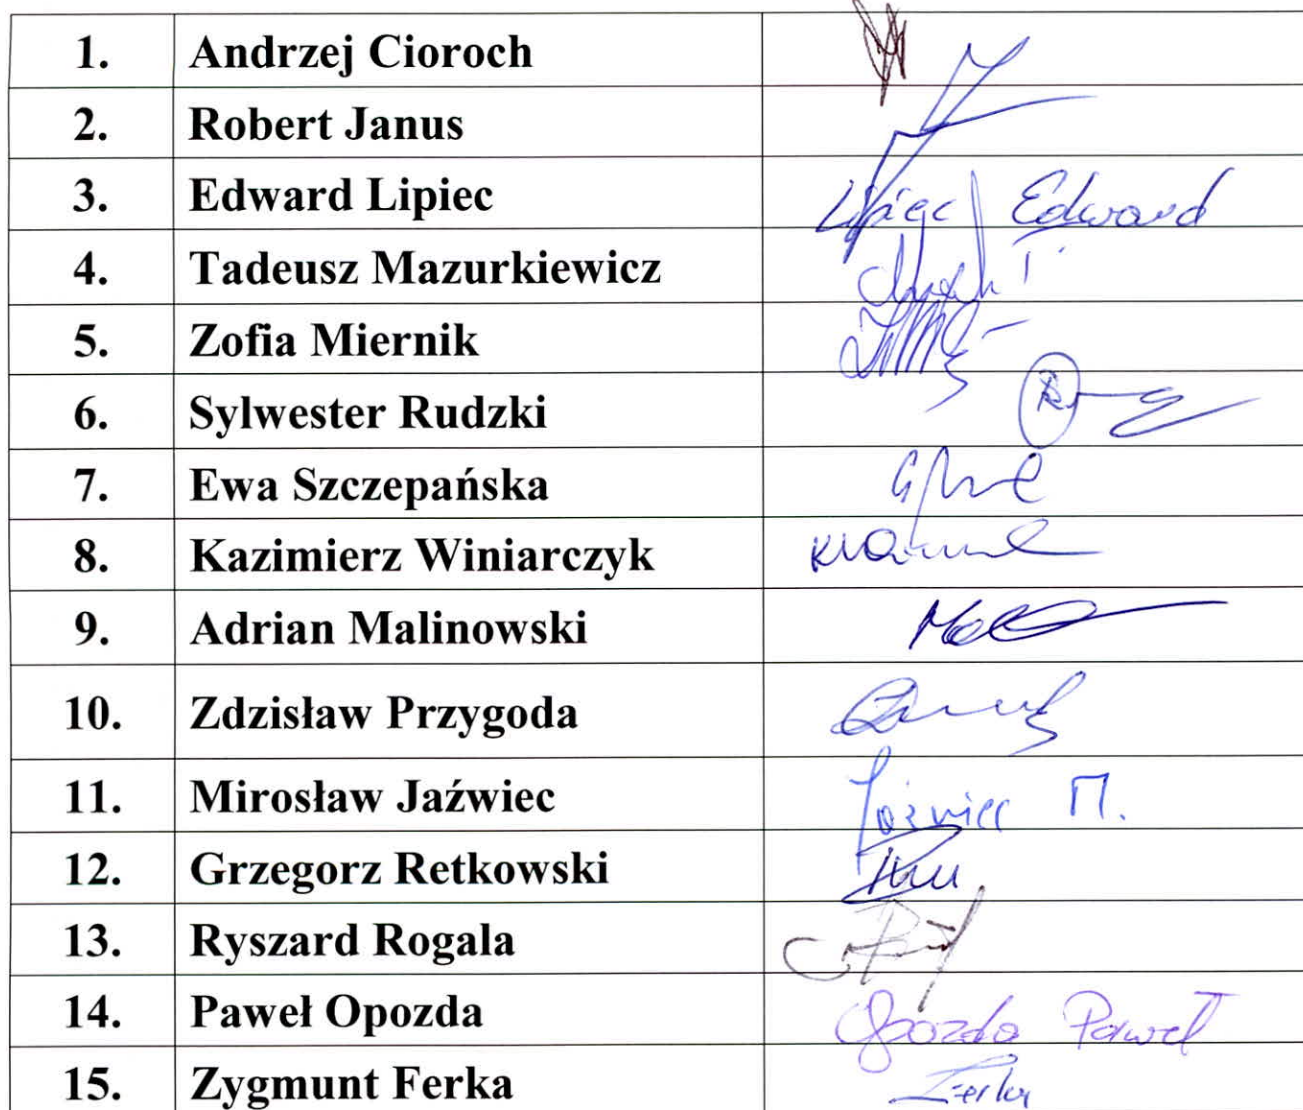 1. Andrzej Cioroch
2. Robert Janus
3. Edward Lipiec Lipiec Edward
4. Tadeusz Mazurkiewicz
5. Zofia Miernik
6. Sylwester Rudzki
7. Ewa Szczepańska
8. Kazimierz Winiarczyk
9. Adrian Malinowski
10. Zdzisław Przygoda
11. Mirosław Jaźwiec Jaźwiec M.
12. Grzegorz Retkowski
13. Ryszard Rogala
14. Paweł Opozda Opozda Paweł
15. Zygmunt Ferka Z Ferka